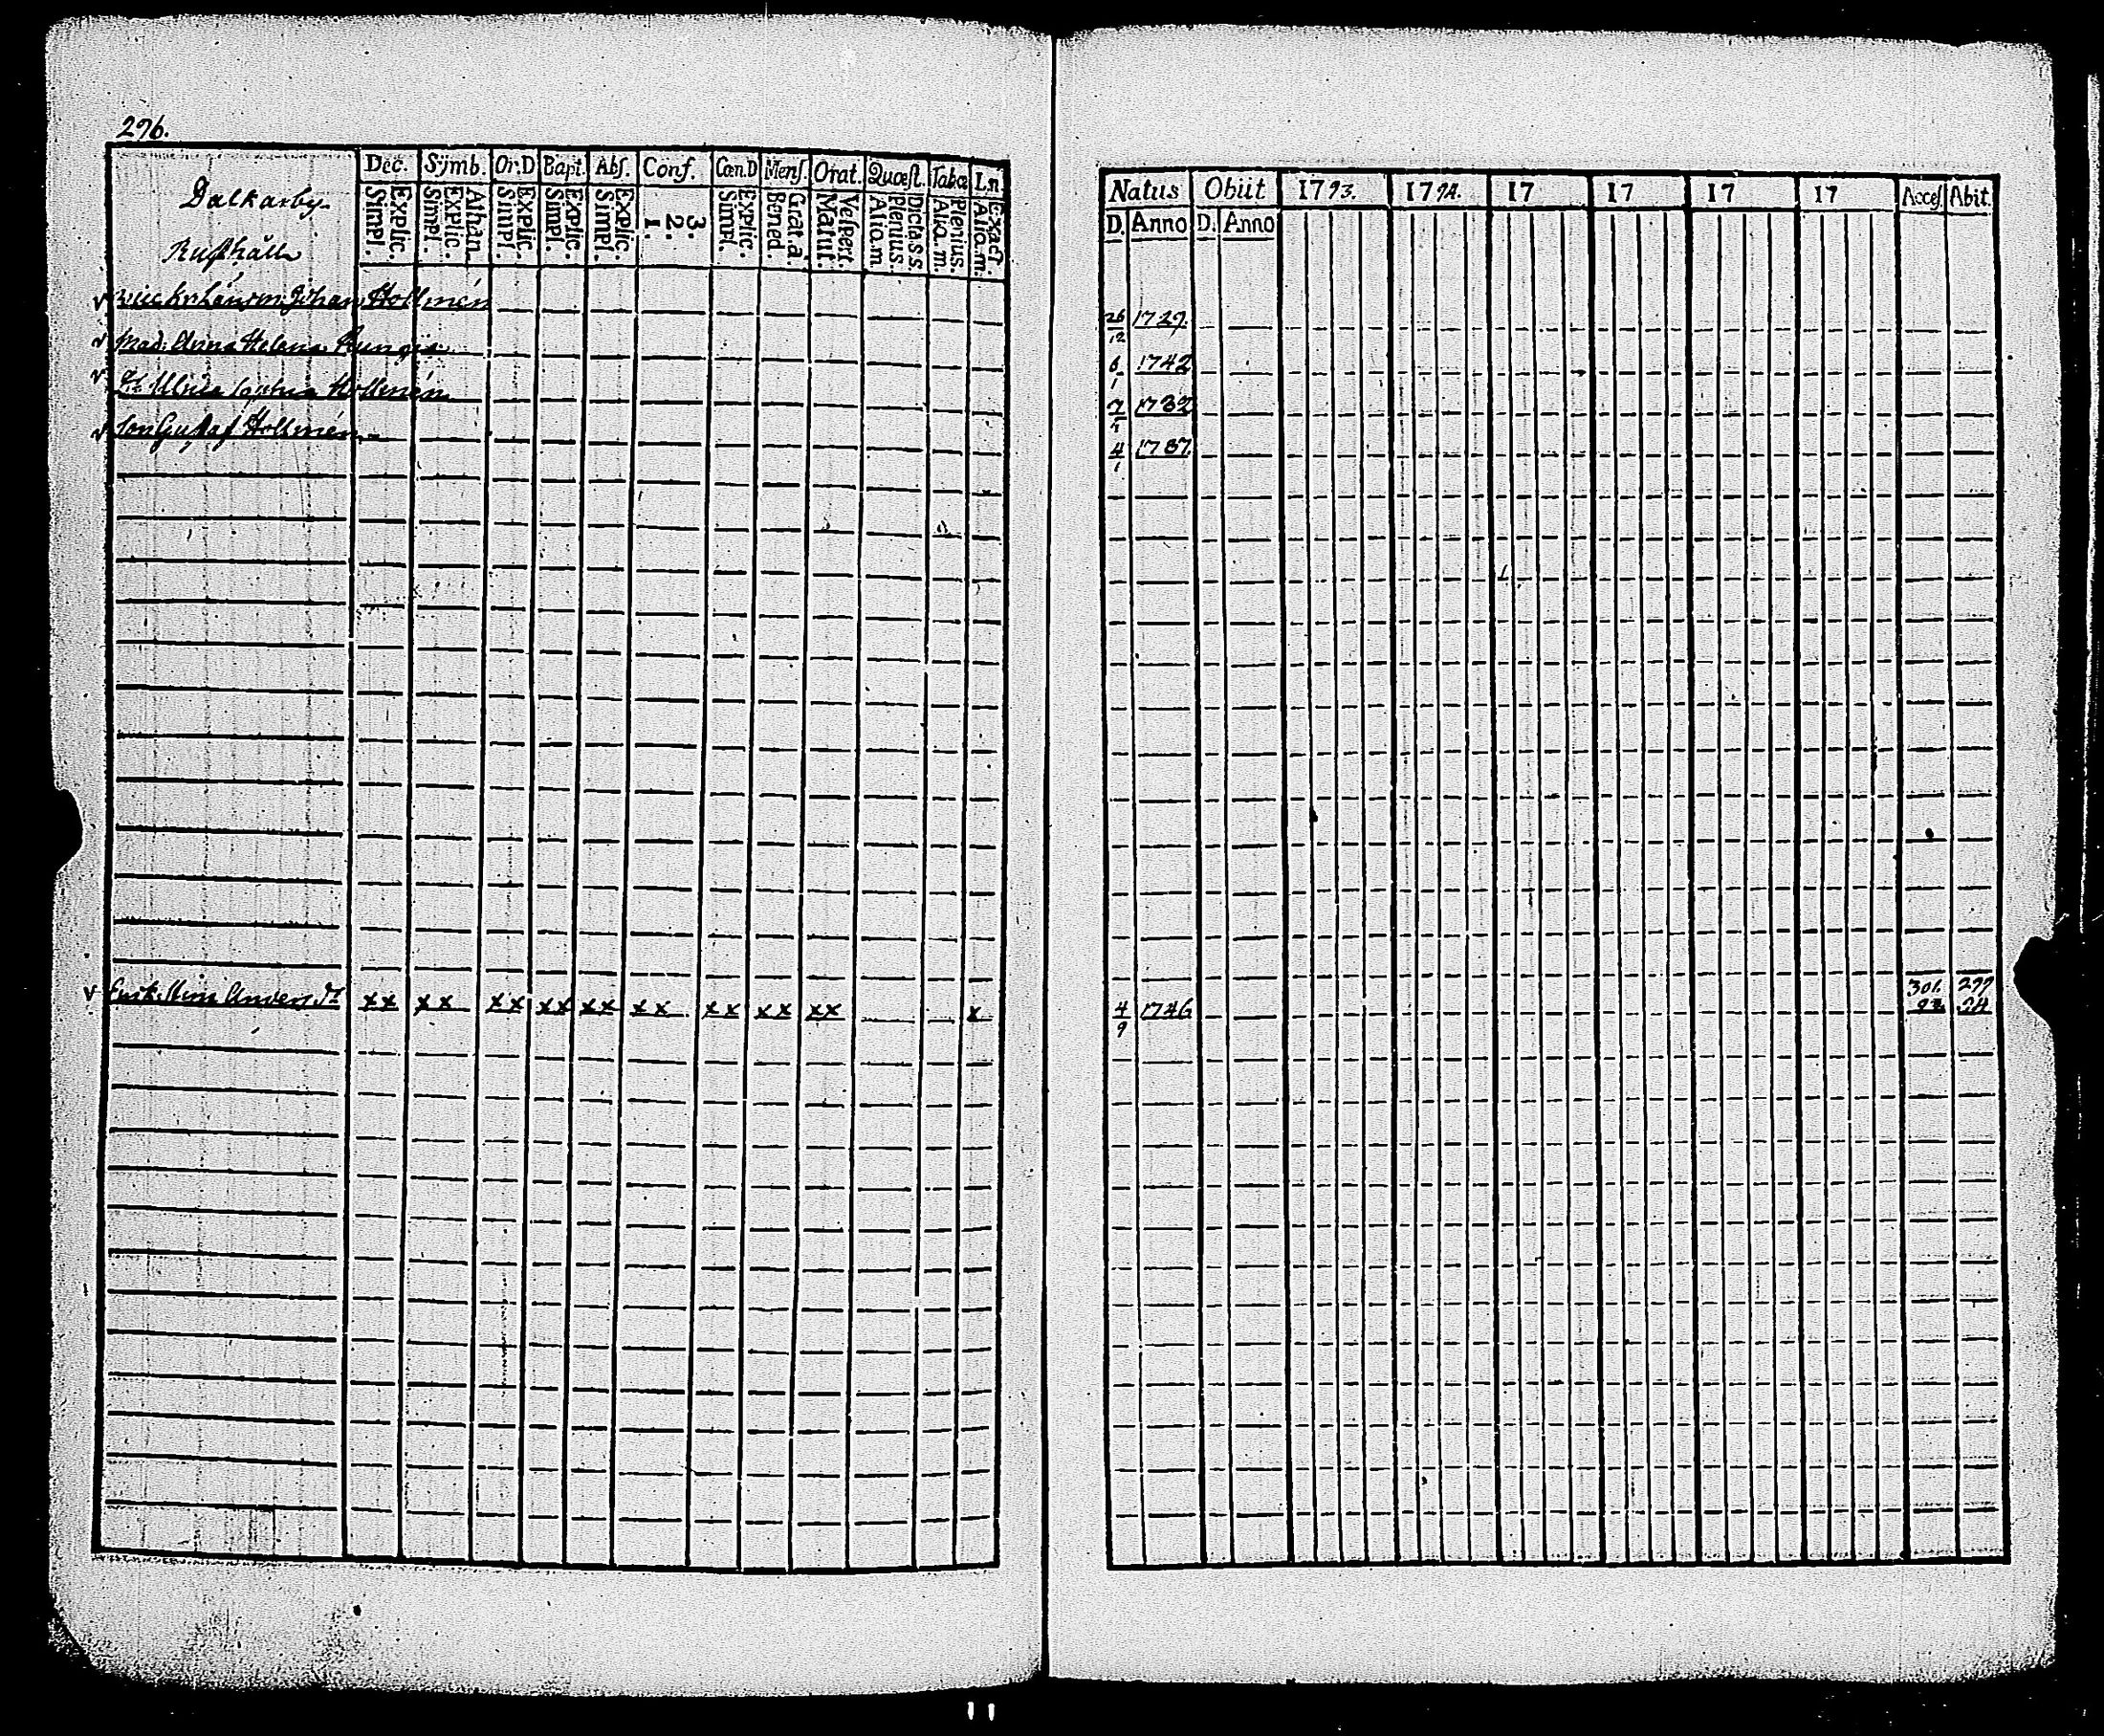 296.
Dec. Symb. Or.D Bapt. Abſ. Conf. Cœn.D Menſ. Orat. Quæſt. Tabæ Ln
Explic. Simpl. Athan. Explic. Simpl. Explic. Simpl. Explic. Simpl. Explic. Simpl. 3. 2. 1. Explic. Simpl. Grat.a. Bened. Veſpert. Matut. Dicta SS Plenius. Alio.m. Plenius. Alia.m. Exact. Alio.m.
Dalkarby
Rusthåll
Johan Hollmén
Mad. Anna Helena Rungia
Ulrica Hollmén
Son Gustaf Hollmén
Enk. Anders dr xx xx xx xx xx xx xx xx xx x
Natus Obiit 1793. 1794. 17 17 17 17 Acceſ. Abit.
D. Anno D. Anno
26/12 1729.
6/1 1742
7/1 1782
4/1 1787.
4/9 1746 301. 299